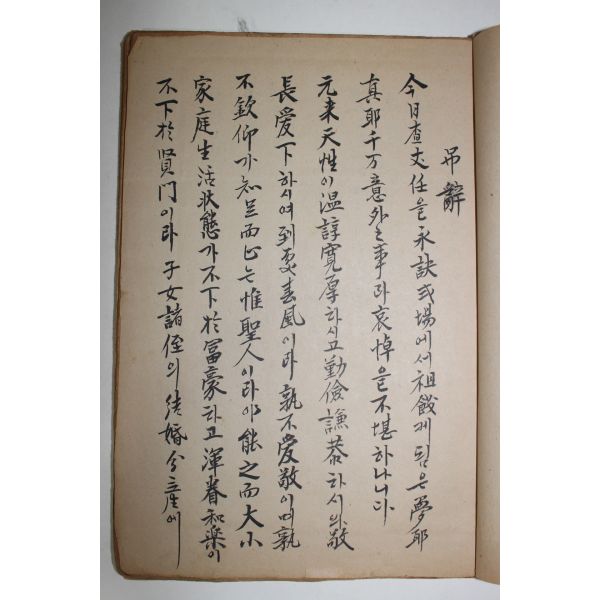 吊辭
今日査丈任을 永訣式場에서 祖餞케 됨은 夢耶
真耶 千万意外之事라 哀悼을 不堪하나니다
元来天性이 温諄寬厚하시고 勤儉謙恭하시의 敬
長愛下하시여 到処春風이라 孰不愛敬이며 孰
不欽仰가 知足而止는 惟聖人이라야 能之而大小
家庭生活状態가 不下於冨豪하고 渾眷和楽이
不下於賢门이라 子女諸侄의 结婚分産에